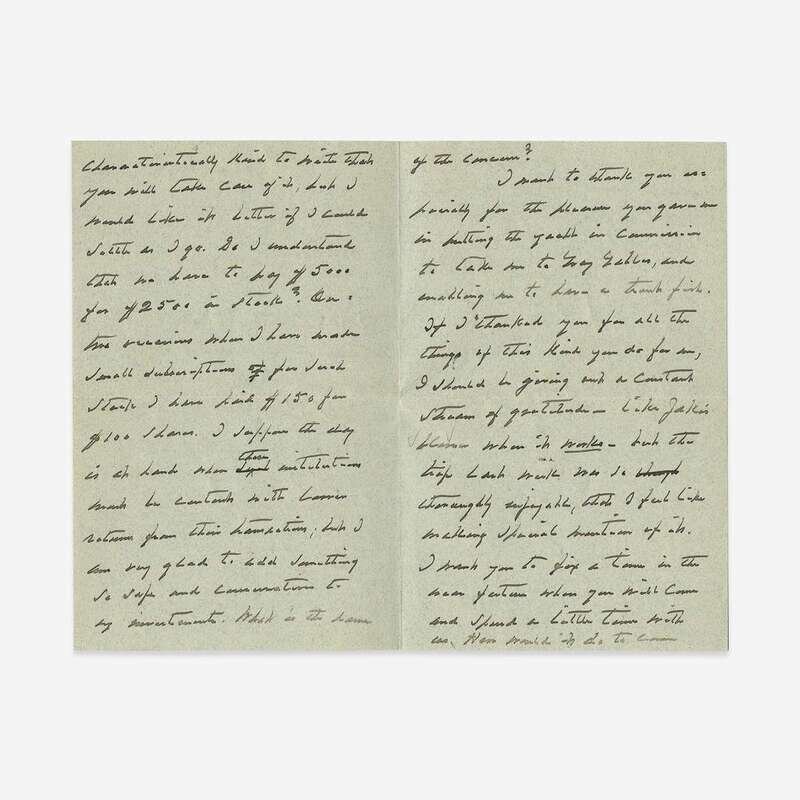 characteristically kind to write that
you will take care of it, but I
would like it better if I could
settle as I go. Do I understand
that we have to pay $5000
for $2500 in stock? On
two occasions when I have made
small subscriptions for such
stock I have paid $150 for
$100 shares. I suppose the day
is at hand when these institutions
must be content with lesser
returns from their transactions; but I
am very glad to add something
so safe and conservative to
my investments. What is the name
of the concern?
I want to thank you es-
pecially for the pleasure you gave me
in putting the yacht in commission
to take me to Gray Gables, and
enabling me to have a trout fish.
If I thanked you for all the
things of this kind you do for me,
I should be giving out a constant
stream of gratitude — like Jake's
when it works — but the
trip last week was so
thoroughly enjoyable, that I feel like
making special mention of it.
I want you to fix a time in the
near future when you will come
and spend a little time with
us. How would it do to come